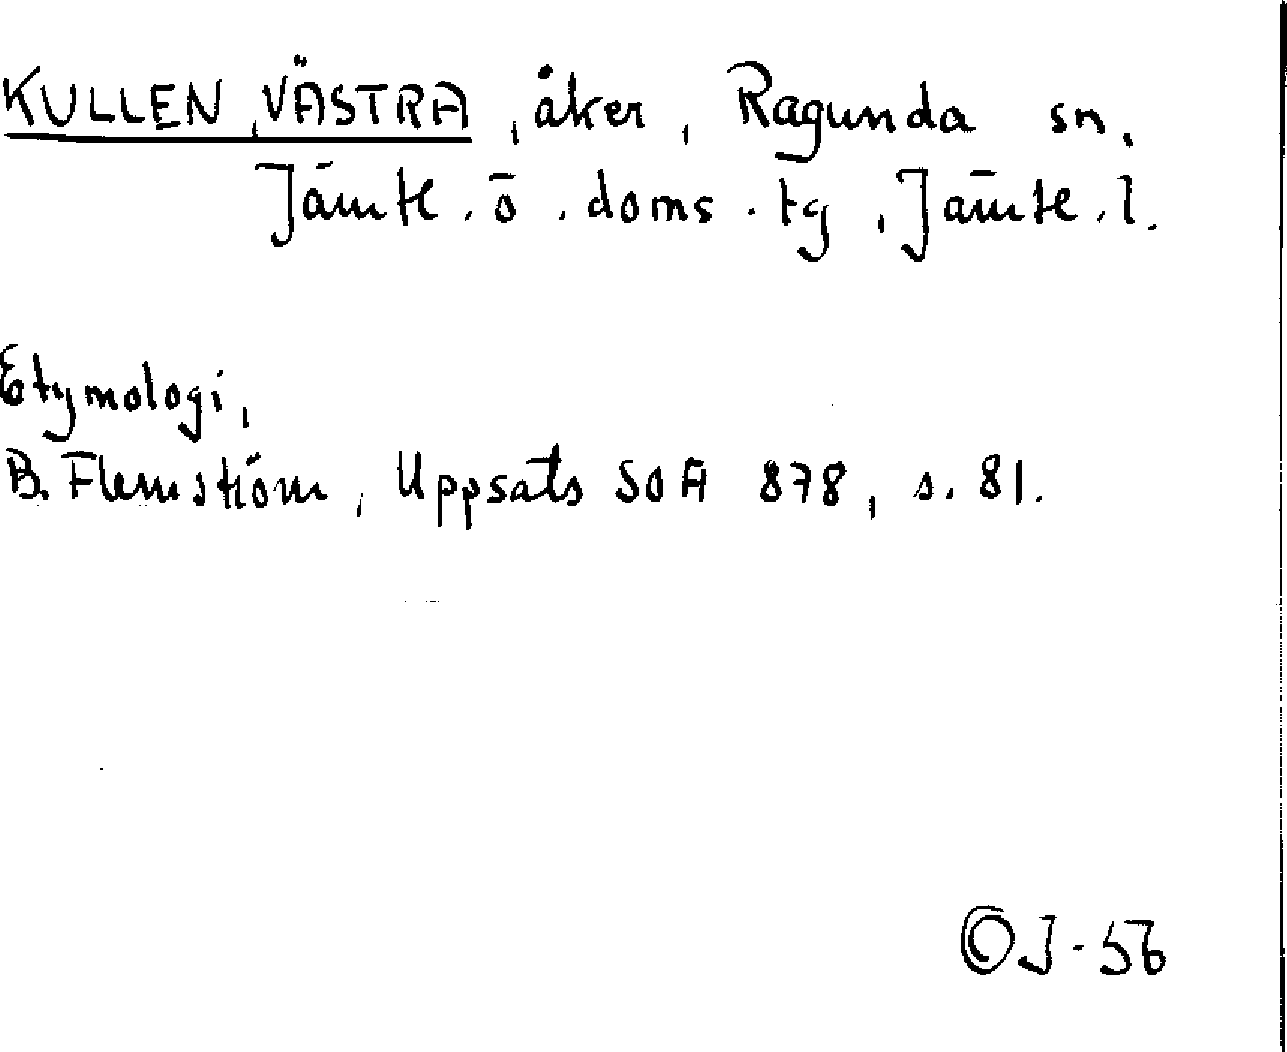 KULLEN, VÄSTRA, åker, Ragunda sn,
Jämtl. ö. doms. tg, Jämtl. l.
Etymologi,
B. Flemström, Uppsats SOA 878, s. 81.
OJ-56